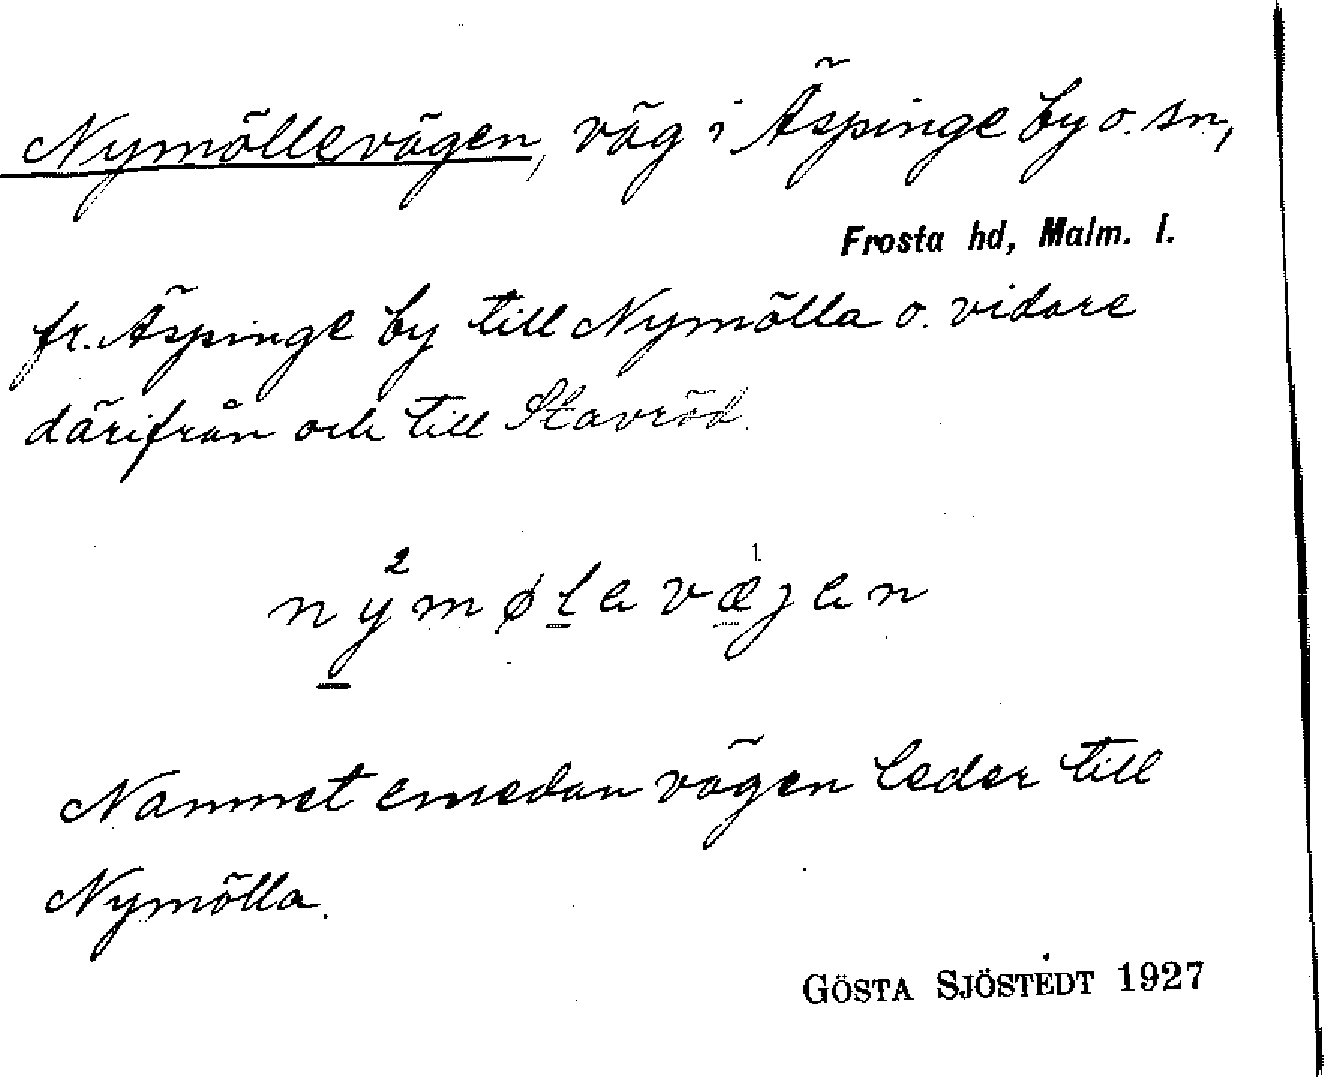 Nymöllevägen, väg i Äspinge by o. sn,
Frosta hd, Malm. l.
fr. Äspinge by till Nymölla o. vidare
därifrån och till Stavröd.
ny²mølavæ¹jan
Namnet emedan vägen leder till
Nymölla.
GÖSTA SJÖSTEDT 1927